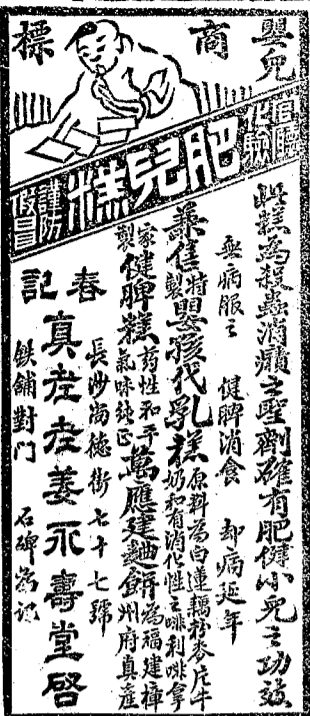 嬰兒商標
化驗
肥兒糕
謹防假冒
此糕為殺蟲消癪之聖劑確有肥健小兒之功效
無病服之 健脾消食 却病延年
兼售特製嬰孩代乳糕原料為白蓮藕粉麥片牛奶和有消化性之啡利啡拿
家製健脾糕葯性和平氣味純正萬應建麯餅為福建樟州府真產
春記
長沙尚德街七十七號
真老老姜永壽堂啓
鉄鋪對門 石碑為記